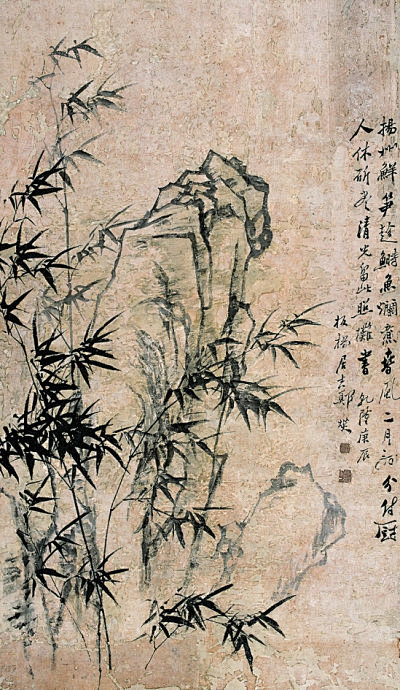 揚州鮮笋趁鰣魚爛煮春風二月初分付厨
人休斫盡清光留此照攤書 乾隆庚辰
板橋居士鄭燮